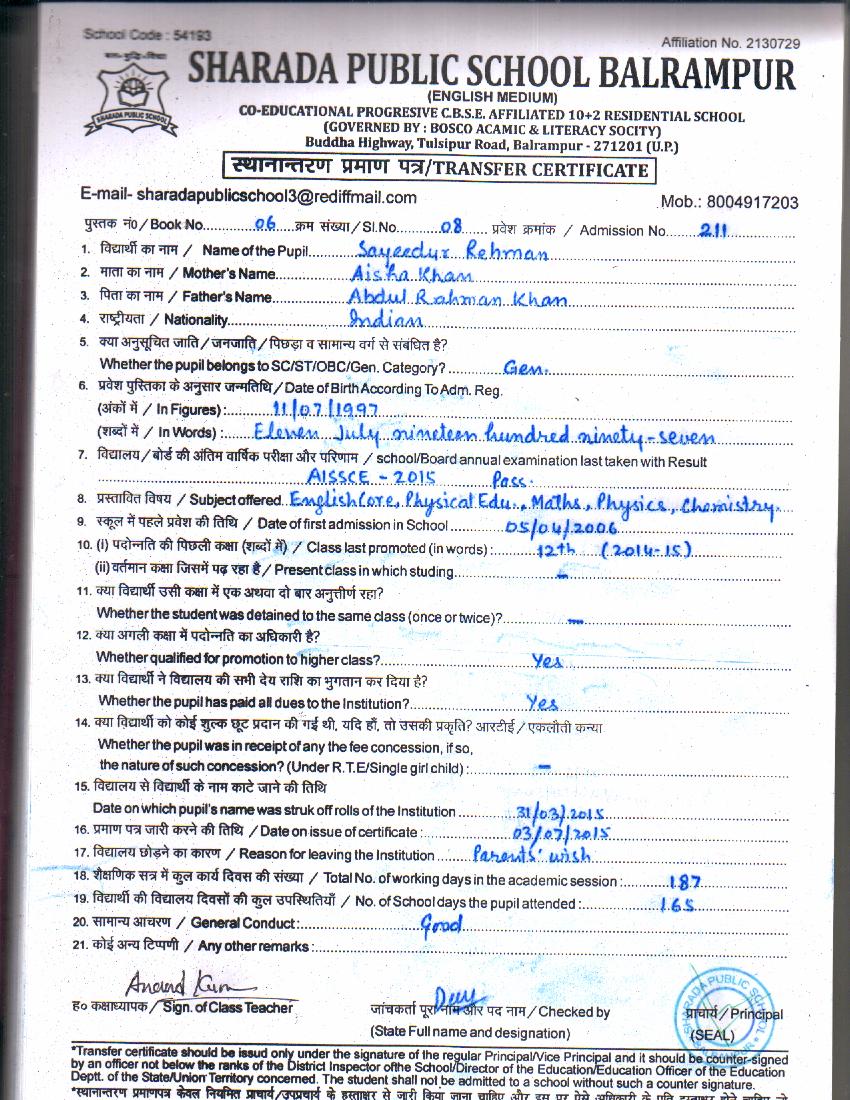 School Code : 54193
Affiliation No. 2130729
SHARADA PUBLIC SCHOOL
SHARADA PUBLIC SCHOOL BALRAMPUR
(ENGLISH MEDIUM)
CO-EDUCATIONAL PROGRESIVE C.B.S.E. AFFILIATED 10+2 RESIDENTIAL SCHOOL
(GOVERNED BY : BOSCO ACAMIC & LITERACY SOCITY)
Buddha Highway, Tulsipur Road, Balrampur - 271201 (U.P.)
स्थानान्तरण प्रमाण पत्र/TRANSFER CERTIFICATE
E-mail- sharadapublicschool3@rediffmail.com
Mob.: 8004917203
पुस्तक नं0/Book No. 06 क्रम संख्या/Sl.No. 08 प्रवेश क्रमांक / Admission No. 211
1. विद्यार्थी का नाम / Name of the Pupil Sayeedur Rehman
2. माता का नाम / Mother's Name Aisha Khan
3. पिता का नाम / Father's Name Abdul Rahman Khan
4. राष्ट्रीयता / Nationality Indian
5. क्या अनुसूचित जाति/जनजाति/पिछड़ा व सामान्य वर्ग से संबंधित है?
Whether the pupil belongs to SC/ST/OBC/Gen. Category? Gen.
6. प्रवेश पुस्तिका के अनुसार जन्मतिथि/Date of Birth According To Adm. Reg.
(अंकों में / In Figures) : 11/07/1997
(शब्दों में / In Words) : Eleven July nineteen hundred ninety-seven
7. विद्यालय/बोर्ड की अंतिम वार्षिक परीक्षा और परिणाम / school/Board annual examination last taken with Result
AISSCE - 2015 Pass.
8. प्रस्तावित विषय / Subject offered English Core, Physical Edu., Maths, Physics, Chemistry.
9. स्कूल में पहले प्रवेश की तिथि / Date of first admission in School 05/04/2006
10. (i) पदोन्नति की पिछली कक्षा (शब्दों में) / Class last promoted (in words) : 12th (2014-15)
(ii) वर्तमान कक्षा जिसमें पढ़ रहा है / Present class in which studing -
11. क्या विद्यार्थी उसी कक्षा में एक अथवा दो बार अनुत्तीर्ण रहा?
Whether the student was detained to the same class (once or twice)? -
12. क्या अगली कक्षा में पदोन्नति का अधिकारी है?
Whether qualified for promotion to higher class? Yes
13. क्या विद्यार्थी ने विद्यालय की सभी देय राशि का भुगतान कर दिया है?
Whether the pupil has paid all dues to the Institution? Yes
14. क्या विद्यार्थी को कोई शुल्क छूट प्रदान की गई थी, यदि हाँ, तो उसकी प्रकृति? आरटीई / एकलौती कन्या
Whether the pupil was in receipt of any the fee concession, if so,
the nature of such concession? (Under R.T.E/Single girl child) : -
15. विद्यालय से विद्यार्थी के नाम काटे जाने की तिथि
Date on which pupil's name was struk off rolls of the Institution 31/03/2015
16. प्रमाण पत्र जारी करने की तिथि / Date on issue of certificate : 03/07/2015
17. विद्यालय छोड़ने का कारण / Reason for leaving the Institution Parents' wish
18. शैक्षणिक सत्र में कुल कार्य दिवस की संख्या / Total No. of working days in the academic session : 187
19. विद्यार्थी की विद्यालय दिवसों की कुल उपस्थितियाँ / No. of School days the pupil attended : 165
20. सामान्य आचरण / General Conduct : Good
21. कोई अन्य टिप्पणी / Any other remarks :
Anand Kum
ह० कक्षाध्यापक / Sign. of Class Teacher
जांचकर्ता पूरा नाम और पद नाम / Checked by
(State Full name and designation)
प्राचार्य / Principal
(SEAL)
SHARADA PUBLIC SCHOOL BALRAMPUR
*Transfer certificate should be issud only under the signature of the regular Principal/Vice Principal and it should be counter-signed
by an officer not below the ranks of the District Inspector ofthe School/Director of the Education/Education Officer of the Education
Deptt. of the State/Union Territory concerned. The student shall not be admitted to a school without such a counter signature.
*स्थानान्तरण प्रमाणपत्र केवल नियमित प्राचार्य/उपप्राचार्य के हस्ताक्षर से जारी किया जाना चाहिए और इस पर